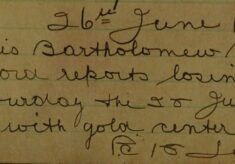 26th June
is Bartholomew
ord reports losin
turday the 25 Ju
with gold center
P.C. 15